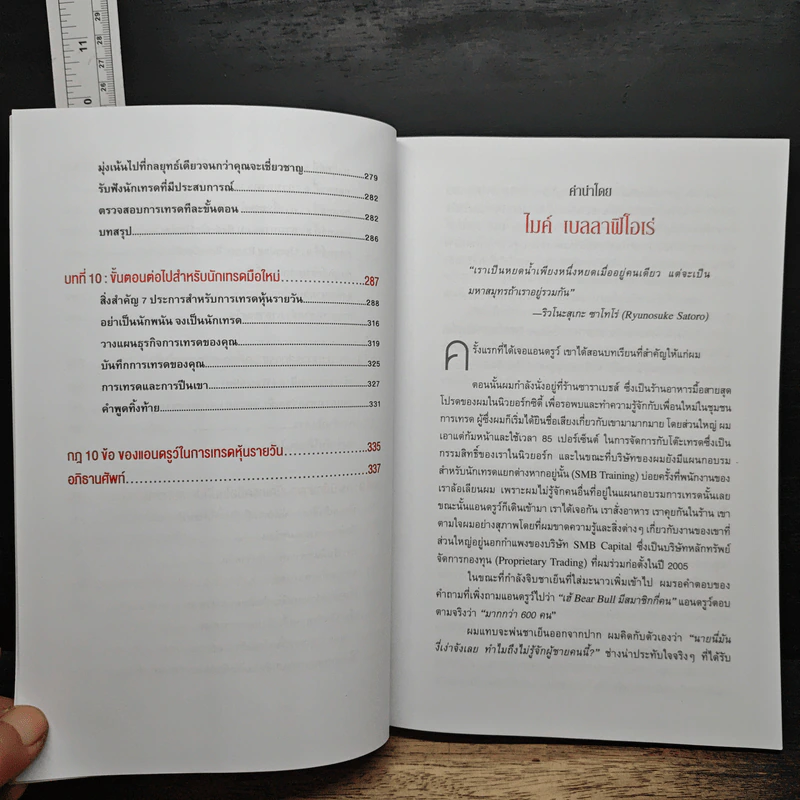 11
0
29
28
27
26
มุ่งเน้นไปที่กลยุทธ์เดียวจนกว่าคุณจะเชี่ยวชาญ..................279
รับฟังนักเทรดที่มีประสบการณ์.....................................282
ตรวจสอบการเทรดทีละขั้นตอน ....................................282
บทสรุป.................................................................286
บทที่ 10 : ขั้นตอนต่อไปสำหรับนักเทรดมือใหม่......................287
สิ่งสำคัญ 7 ประการสำหรับการเทรดหุ้นรายวัน...................288
อย่าเป็นนักพนัน จงเป็นนักเทรด...................................316
วางแผนธุรกิจการเทรดของคุณ....................................319
บันทึกการเทรดของคุณ.............................................325
การเทรดและการปีนเขา.............................................327
คำพูดทิ้งท้าย..........................................................331
กฎ 10 ข้อ ของแอนดรูว์ในการเทรดหุ้นรายวัน.......................335
อภิธานศัพท์.............................................................337
คำนำโดย
ไมค์ เบลลาฟิโอเร่
“เราเป็นหยดน้ำเพียงหนึ่งหยดเมื่ออยู่คนเดียว แต่จะเป็น
มหาสมุทรถ้าเราอยู่รวมกัน”
—ริวโนะสุเกะ ซาโทโร่ (Ryunosuke Satoro)
ครั้งแรกที่ได้เจอแอนดรูว์ เขาได้สอนบทเรียนที่สำคัญให้แก่ผม
ตอนนั้นผมกำลังนั่งอยู่ที่ร้านซาราเบธส์ ซึ่งเป็นร้านอาหารมื้อสายสุด
โปรดของผมในนิวยอร์กซิตี้ เพื่อรอพบและทำความรู้จักกับเพื่อนใหม่ในชุมชน
การเทรด ผู้ซึ่งผมก็เริ่มได้ยินชื่อเสียงเกี่ยวกับเขามามากมาย โดยส่วนใหญ่ ผม
เอาแต่ก้มหน้าและใช้เวลา 85 เปอร์เซ็นต์ ในการจัดการกับโต๊ะเทรดซึ่งเป็น
กรรมสิทธิ์ของเราในนิวยอร์ก และในขณะที่บริษัทของผมยังมีแผนกอบรม
สำหรับนักเทรดแยกต่างหากอยู่นั้น (SMB Training) บ่อยครั้งที่พนักงานของ
เราล้อเลียนผม เพราะผมไม่รู้จักคนอื่นที่อยู่ในแผนกอบรมการเทรดนั้นเลย
ขณะนั้นแอนดรูว์ก็เดินเข้ามา เราได้เจอกัน เราสั่งอาหาร เราคุยกันในร้าน เขา
ตามใจผมอย่างสุภาพโดยที่ผมขาดความรู้และสิ่งต่างๆ เกี่ยวกับงานของเขาที่
ส่วนใหญ่อยู่นอกกำแพงของบริษัท SMB Capital ซึ่งเป็นบริษัทหลักทรัพย์
จัดการกองทุน (Proprietary Trading) ที่ผมร่วมก่อตั้งในปี 2005
ในขณะที่กำลังจิบชาเย็นที่ใส่มะนาวเพิ่มเข้าไป ผมรอคำตอบของ
คำถามที่เพิ่งถามแอนดรูว์ไปว่า “เฮ้ Bear Bull มีสมาชิกกี่คน” แอนดรูว์ตอบ
ตามจริงว่า “มากกว่า 600 คน”
ผมแทบจะพ่นชาเย็นออกจากปาก ผมคิดกับตัวเองว่า “นายนี่มัน
งี่เง่าจังเลย ทำไมถึงไม่รู้จักผู้ชายคนนี้?” ช่างน่าประทับใจจริงๆ ที่ได้รับ